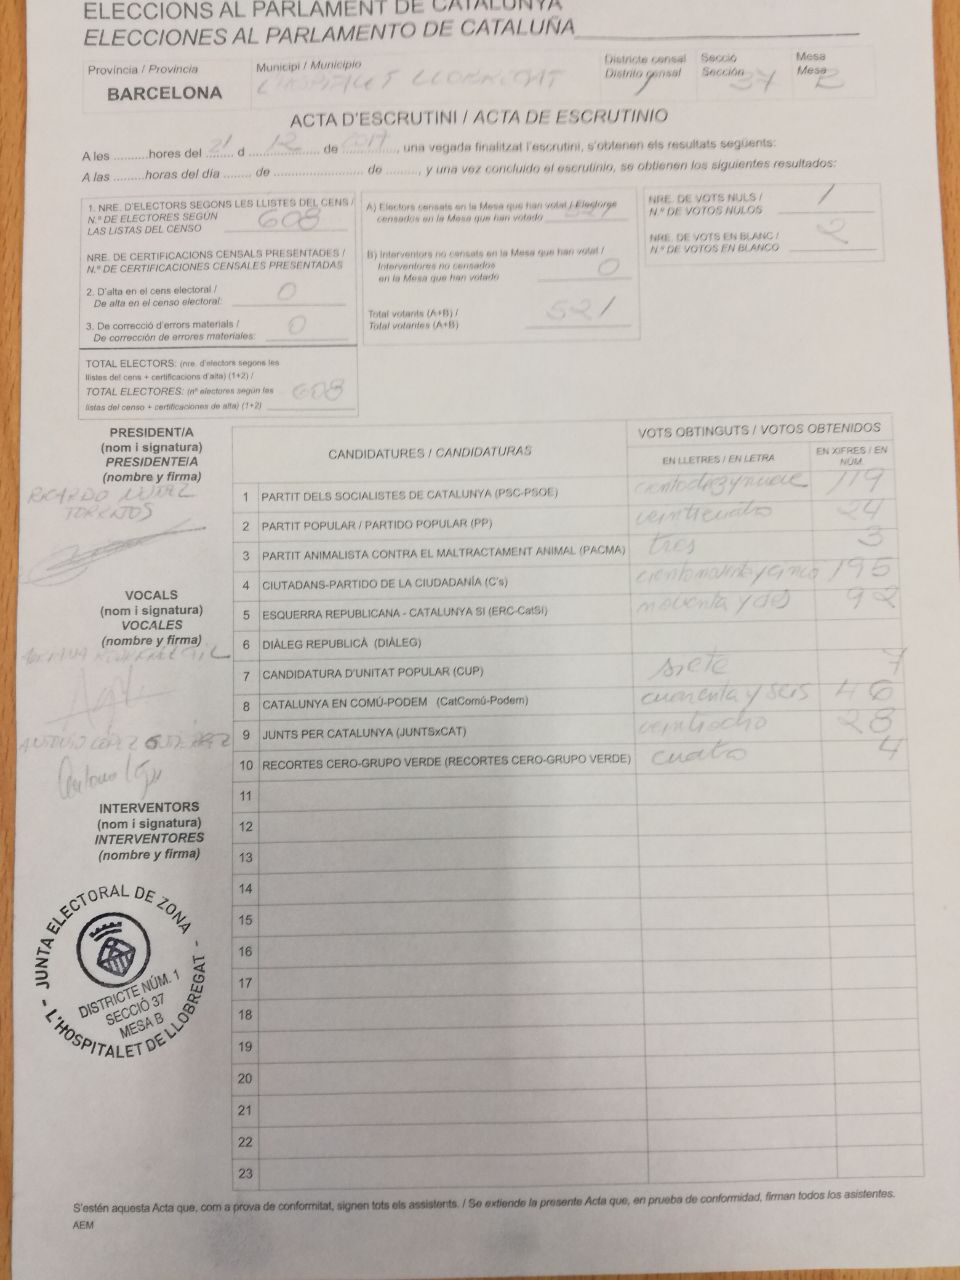 ELECCIONS AL PARLAMENT DE CATALUNYA
ELECCIONES AL PARLAMENTO DE CATALUÑA
Província / Provincia
BARCELONA
Municipi / Municipio
L'HOSPITALET LLOBREGAT
Districte censal
Distrito censal
1
Secció
Sección
37
Mesa
Mesa
B
ACTA D'ESCRUTINI / ACTA DE ESCRUTINIO
A les ..........hores del 21 d 12 de 2017, una vegada finalitzat l'escrutini, s'obtenen els resultats següents:
A las ..........hores del día ........ de .......................... de ........., y una vez concluido el escrutinio, se obtienen los siguientes resultados:
1. NRE. D'ELECTORS SEGONS LES LLISTES DEL CENS /
N.º DE ELECTORES SEGÚN
LAS LISTAS DEL CENSO
608
NRE. DE CERTIFICACIONS CENSALS PRESENTADES /
N.º DE CERTIFICACIONES CENSALES PRESENTADAS
2. D'alta en el cens electoral /
De alta en el censo electoral:
0
3. De correcció d'errors materials /
De corrección de errores materiales:
0
TOTAL ELECTORS: (nre. d'electors segons les
llistes del cens + certificacions d'alta) (1+2) /
TOTAL ELECTORES: (nº electores según las
listas del censo + certificaciones de alta) (1+2)
608
A) Electors censats en la Mesa que han votat / Electores
censados en la Mesa que han votado
521
B) Interventors no censats en la Mesa que han votat /
Interventores no censados
en la Mesa que han votado
0
Total votants (A+B) /
Total votantes (A+B)
521
NRE. DE VOTS NULS /
N.º DE VOTOS NULOS
1
NRE. DE VOTS EN BLANC /
N.º DE VOTOS EN BLANCO
2
PRESIDENT/A
(nom i signatura)
PRESIDENTE/A
(nombre y firma)
RICARDO
VOCALS
(nom i signatura)
VOCALES
(nombre y firma)
ANTONIO LÓPEZ
Antonio
INTERVENTORS
(nom i signatura)
INTERVENTORES
(nombre y firma)
JUNTA ELECTORAL DE ZONA
DISTRICTE NÚM. 1
SECCIÓ 37
MESA B
L'HOSPITALET DE LLOBREGAT
CANDIDATURES / CANDIDATURAS
VOTS OBTINGUTS / VOTOS OBTENIDOS
EN LLETRES / EN LETRA
EN XIFRES / EN NÚM.
1 PARTIT DELS SOCIALISTES DE CATALUNYA (PSC-PSOE) ciento diez y nueve 119
2 PARTIT POPULAR / PARTIDO POPULAR (PP) veinticuatro 24
3 PARTIT ANIMALISTA CONTRA EL MALTRACTAMENT ANIMAL (PACMA) tres 3
4 CIUTADANS-PARTIDO DE LA CIUDADANÍA (C's) ciento noventa y cinco 195
5 ESQUERRA REPUBLICANA - CATALUNYA SI (ERC-CatSí) noventa y dos 92
6 DIÀLEG REPUBLICÀ (DIÀLEG)
7 CANDIDATURA D'UNITAT POPULAR (CUP) siete 7
8 CATALUNYA EN COMÚ-PODEM (CatComú-Podem) cuarenta y seis 46
9 JUNTS PER CATALUNYA (JUNTSxCAT) veintiocho 28
10 RECORTES CERO-GRUPO VERDE (RECORTES CERO-GRUPO VERDE) cuatro 4
11
12
13
14
15
16
17
18
19
20
21
22
23
S'estén aquesta Acta que, com a prova de conformitat, signen tots els assistents. / Se extiende la presente Acta que, en prueba de conformidad, firman todos los asistentes.
AEM